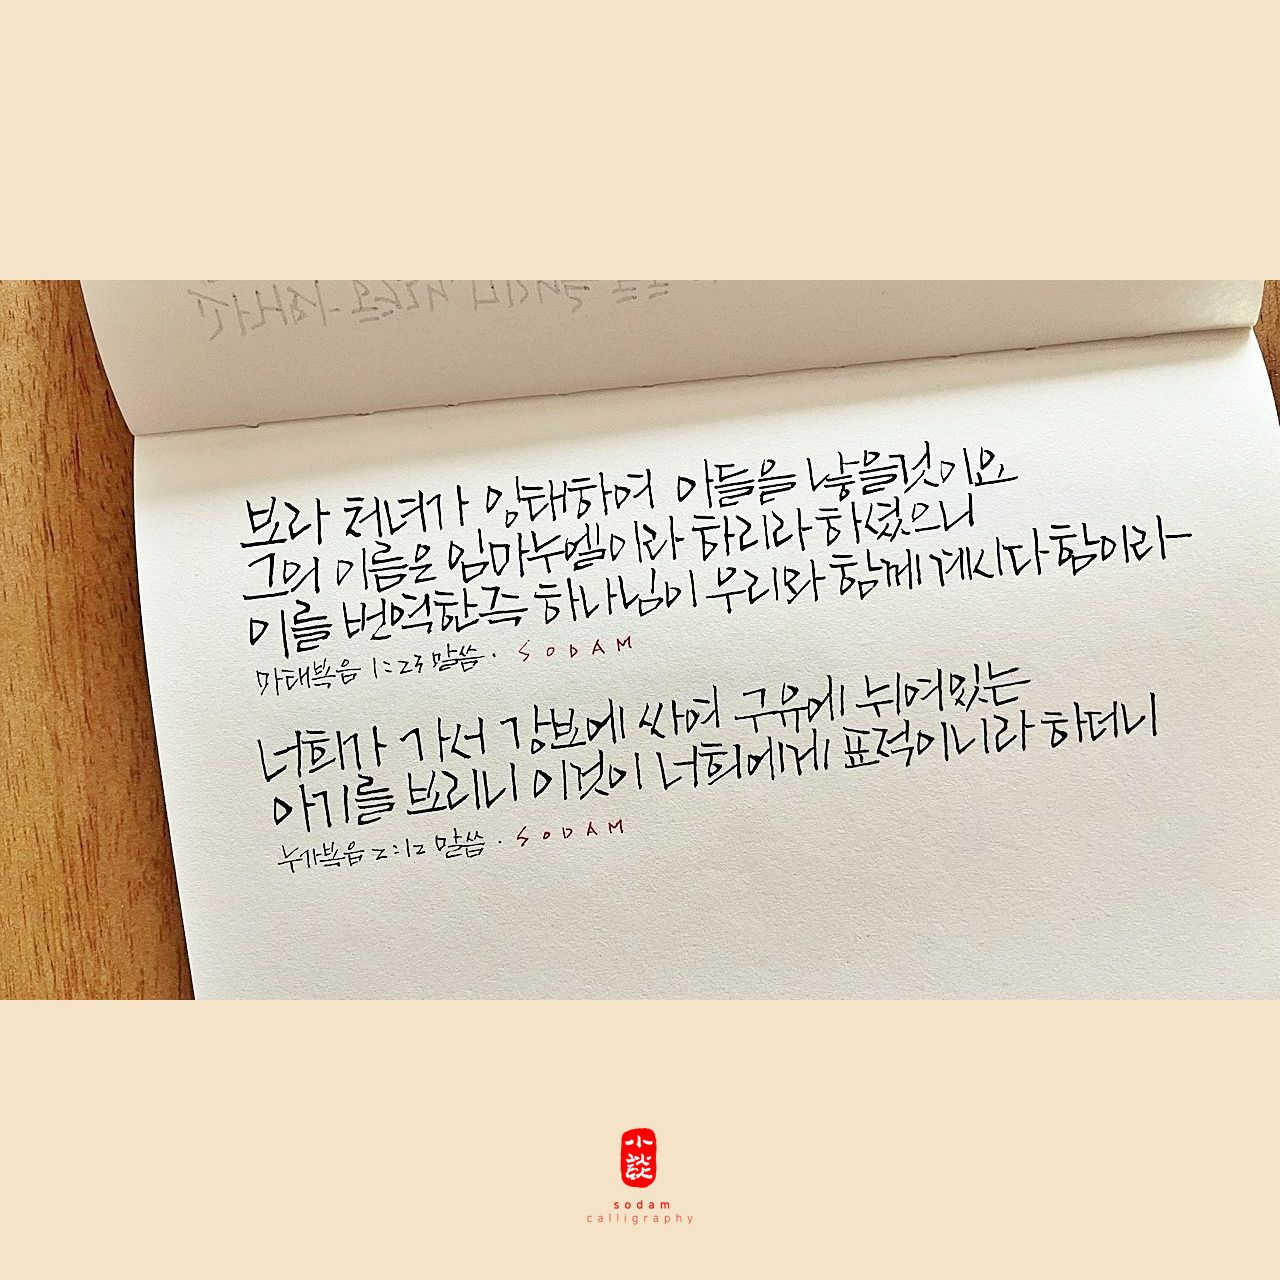 보라 처녀가 잉태하여 아들을 낳을것이요
그의 이름은 임마누엘이라 하리라 하셨으니
이를 번역한즉 하나님이 우리와 함께 계시다 함이라
마태복음 1:23 말씀. SODAM
너희가 가서 강보에 싸여 구유에 뉘여있는
아기를 보리니 이것이 너희에게 표적이니라 하더니
누가복음 2:12 말씀. SODAM
小談
sodam
calligraphy